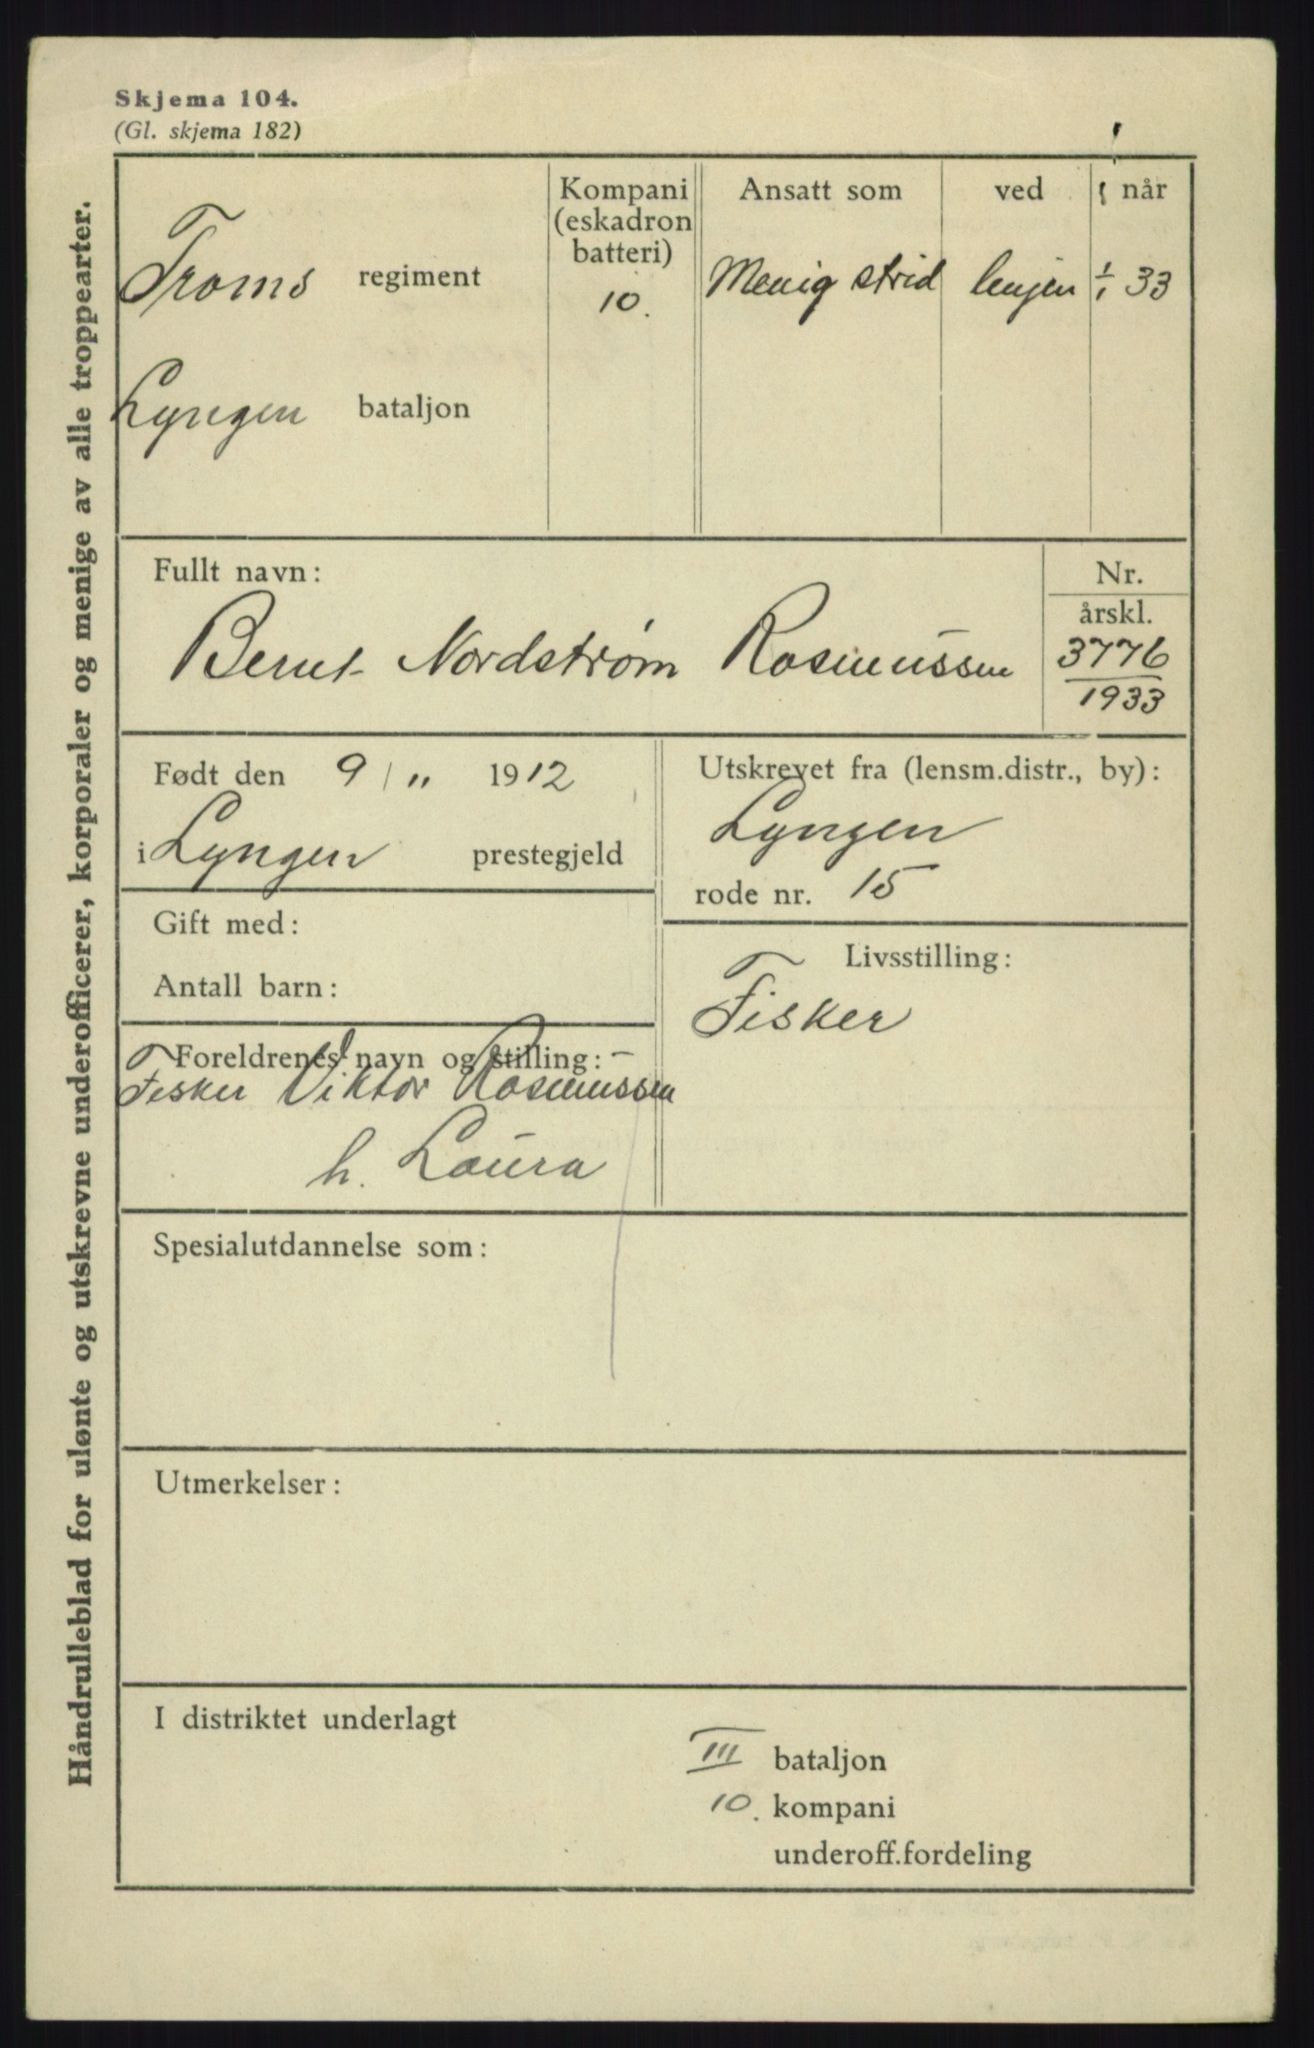 Skjema 104.
(Gl. skjema 182)
Håndrulleblad for ulønte og utskrevne underofficerer, korporaler og menige av alle troppearter.
Troms regiment
Lyngen bataljon
Kompani
(eskadron
batteri)
10.
Ansatt som ved når
Menig strid linjen 1/1 33
Fullt navn:
Bernt Nordstrøm Rasmussen
Nr.
årskl.
3776
1933
Født den 9/11 1912
i Lyngen prestegjeld
Utskrevet fra (lensm.distr., by):
Lyngen
rode nr. 15
Gift med:
Antall barn:
Livsstilling:
Fisker
Foreldrenes navn og stilling:
Fisker Viktor Rasmussen
h. Laura
Spesialutdannelse som:
Utmerkelser:
I distriktet underlagt
III bataljon
10. kompani
underoff.fordeling